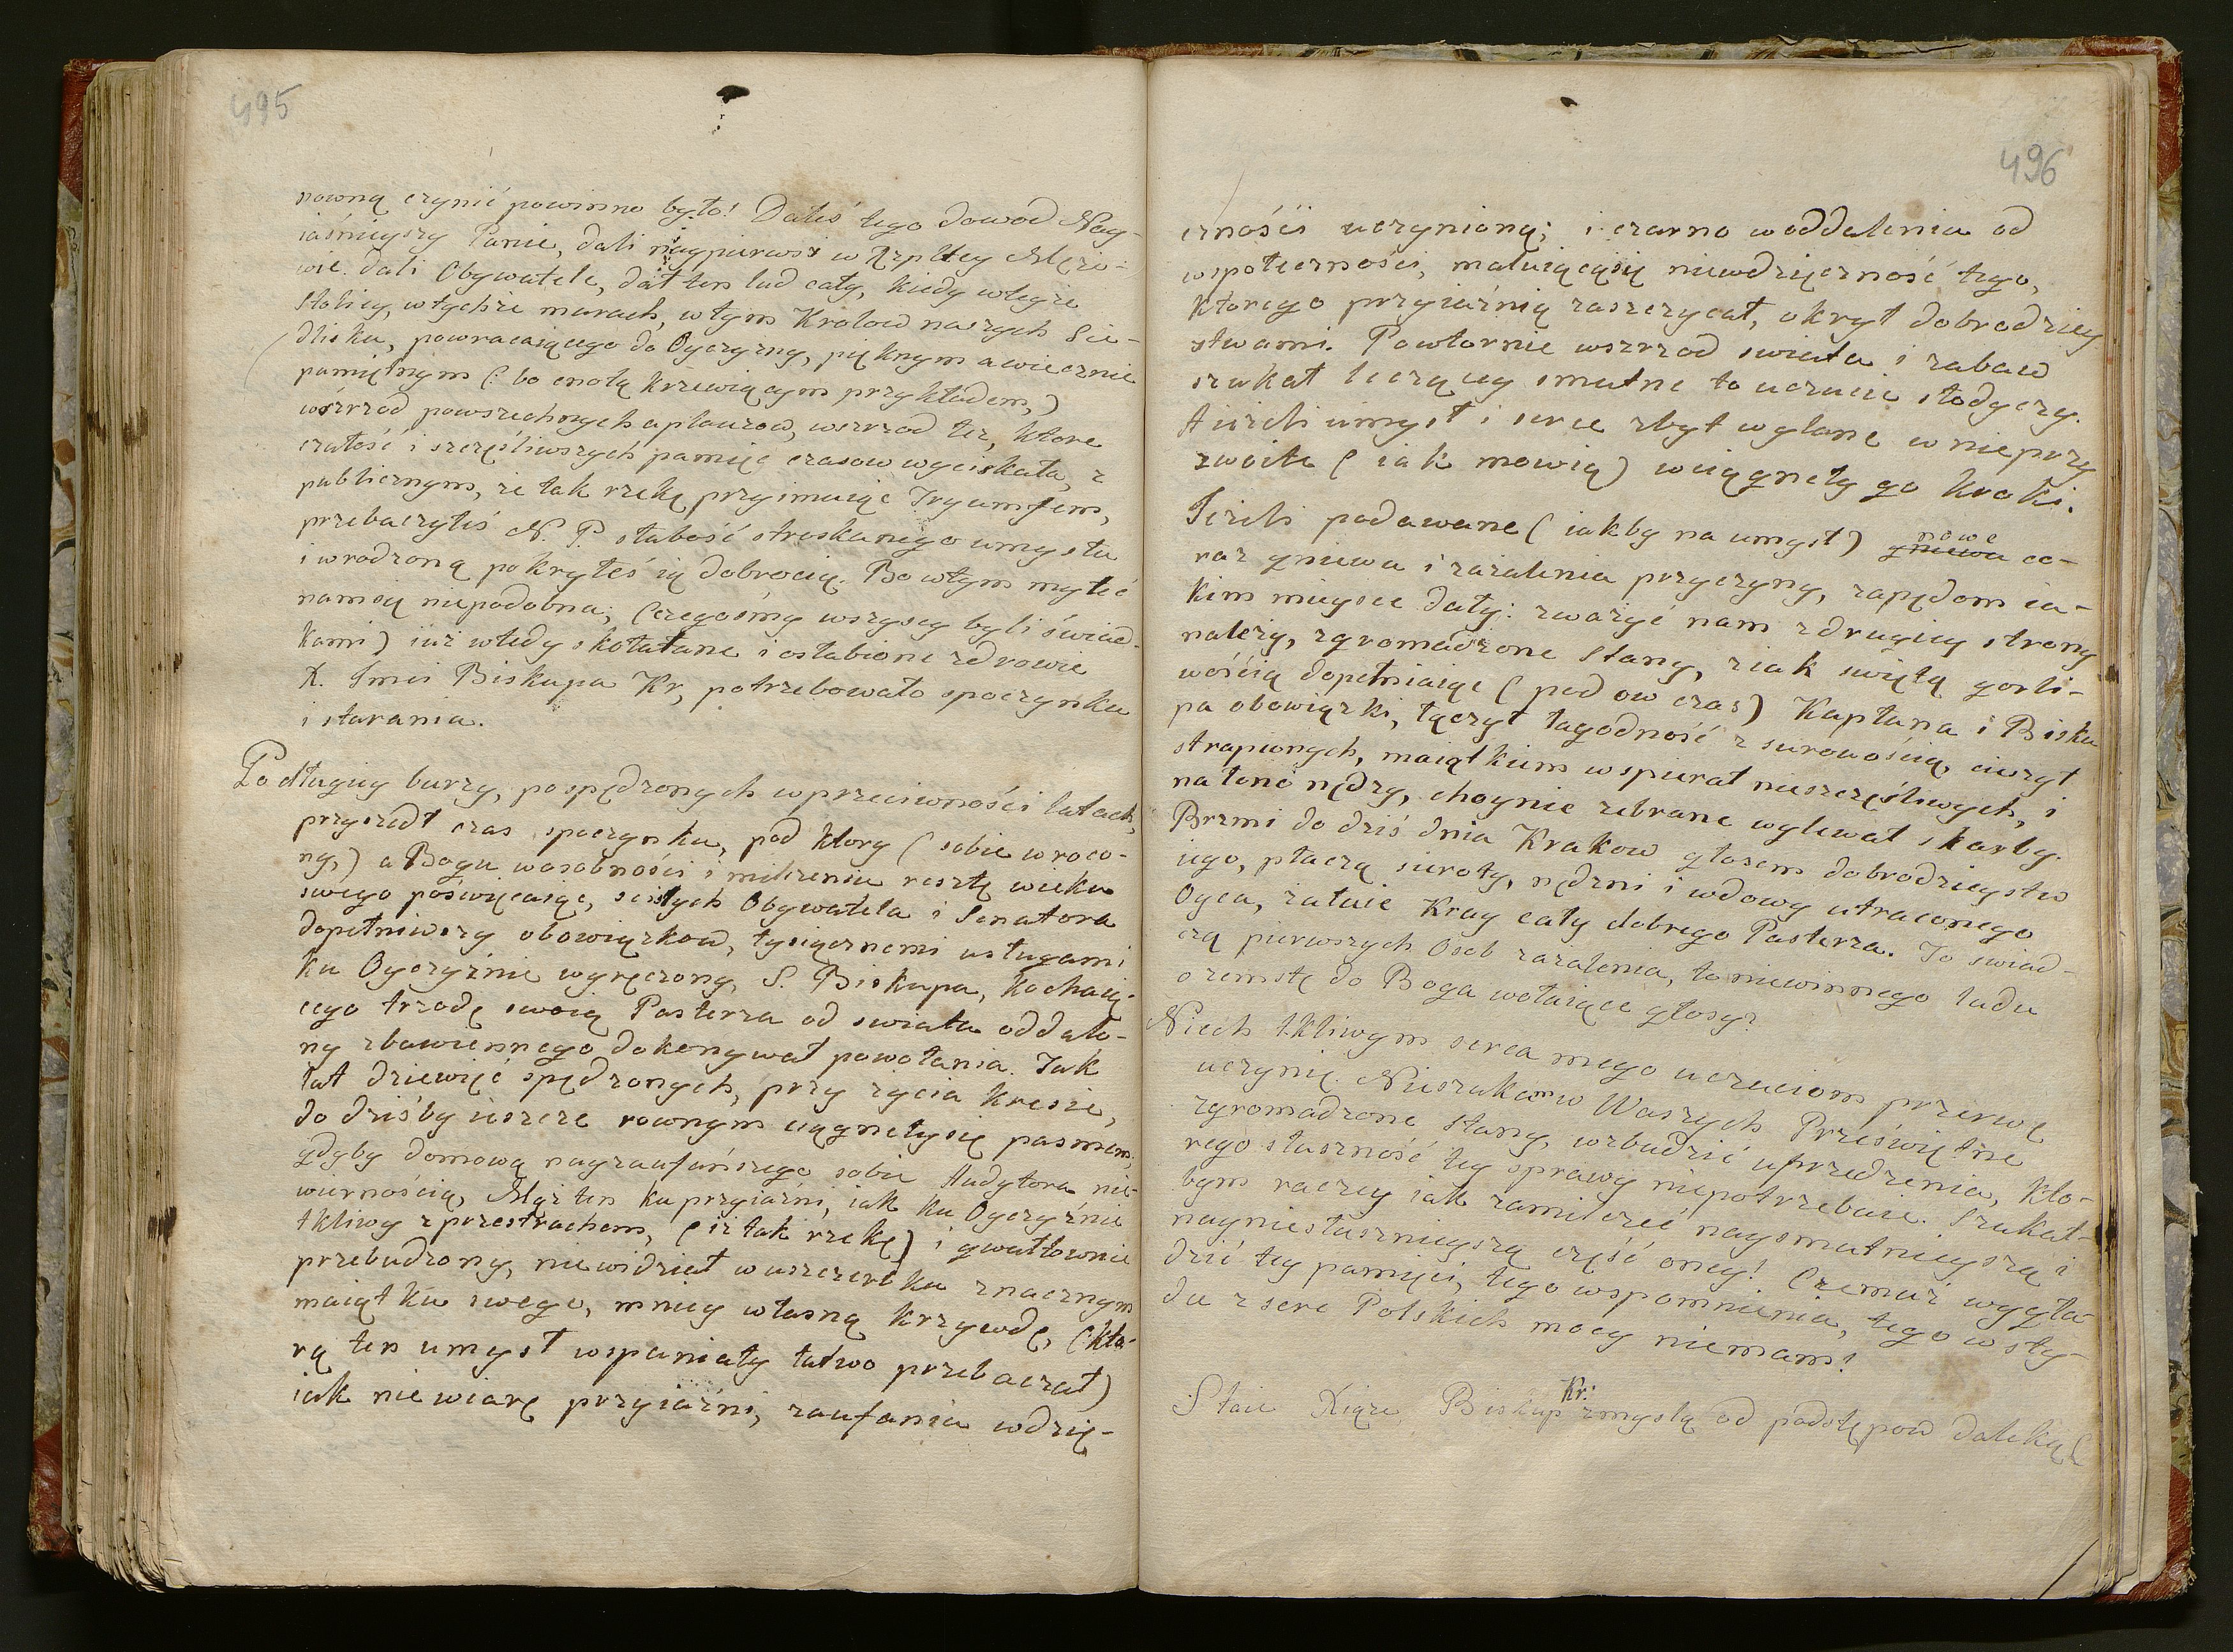 495
powną czynić powinno było! Dałeś tego dowod Nay-
iaśnieyszy Panie, dali naypierwsi w Rzpltey Mężo-
wie. dali Obywatele, dał ten lud cały, kiedy wteyże
Stolicy, wtychże murach, wtym Krolow naszych Sie-
dlisku, powracaiącego do Oyczyzny, pięknym a wiecznie
pamiętnym (: bo cnotą krzewiącym przykładem,)
wśrzrzod powszechnych aplauzow, wszrzod łez, ktore
czułość i szczęśliwszych pamięć czasow wyciskała, z
publicznym, że tak rzekę przyimuiąc Tryumfem,
przebaczyłeś N. P. słabość stroskanego umysłu
i wrodzoną pokryłeś ią dobrocią. Bo wtym mylić
nam się niepodobna; (czegośmy wszyscy byli świad-
kami) iuż wtedy skołatane i osłabione zdrowie
X. Jmci Biskupa Kr, potrzebowało spoczynku
i starania.
Po długiey burzy, po spędzonych wprzeciwności latach,
przyszedł czas spoczynku, pod ktory (sobie wroco-
ny,) a Bogu wosobności i milczeniu resztę wieku
swego poświęcaiąc, scisłych Obywatela i Senatora
dopełniwszy obowiązkow, tysiącznemi usługami
ku Oyczyźnie wyręczony, S. Biskupa, kochaią-
cego trzodę swoią Pasterza od swiata oddalo-
ny zbawiennego dokonywał powołania. Tak
lat dziewięć spędzonych, przy życia kresie,
do dziśby ieszcze rownym ciągneły się pasmem,
gdyby domową nayzaufańszego sobie Audytora nie-
wiernością, Mąż ten ku przyiaźni, iak ku Oyczyźnie
tkliwy z przestrachem, (iż tak rzekę) i gwałtownie
przebudzony, nie widział w uszczerbku znacznym
maiątku swego, mniey własną krzywdę, (kto-
rą ten umysł wspaniały łatwo przebaczał)
iak niewiarę przyiaźni, zaufania wdzię-
496
czności uczynioną; i czarno woddaleniu od
wspołeczności, maluiącąsię niewdzięczność tego,
ktorego przyiaźnią zaszczycał, okrył dobrodziey
stwami. Powtornie wszrzod swiata i zabaw
szukał leczącey smutne to uczucie słodyczy.
Aieżeli umysł i serce zbyt wylane w nieprzy
zwoite (iak mowią) wciągneły go kroki.
Jeżeli podawane (iakby na umysł) gniewu nowe co-
raz gniewu i zażalenia przyczyny, zapędom ia-
kim mieysce dały: zważyć nam zdrugiey strony
należy, zgromadzone Stany, ziak świętą gorli-
wością dopełniaiąc (pod ow czas) Kapłana i Bisku
pa obowiązki, łączył łagodność z surowością, cieszył
strapionych, maiątkiem wspierał nieszczęśliwych, i
na łono nędzy, choynie zebrane wylewał skarby.
Brzmi do dziś dnia Krakow głosem dobrodzieystw
iego, płaczą sieroty, nędzni i wdowy utraconego
Oyca, żałuie Kray cały dobrego Pasterza. To swiad-
czą pierwszych Osob zażalenia, to niewinnego ludu
o zemstę do Boga wołaiące głosy?
Niech tkliwym serca mego uczuciom przerwę
uczynię. Nieszukam w Waszych Prześwietne
zgromadzone Stany, wzbudzić uprzedzenia, kto-
rego słuszność tey sprawy niepotrzebuie. Szukał-
bym raczey iak zamilczeć naysmutnieyszą i
nayniesłusznieyszą część oney! Czemuż wygła-
dzić tey pamięci, tego wspomnienia, tego wsty-
du z serc Polskich mocy niemam!
Staie Xiąże Biskup Kr: zmyslą od podstępow daleką (